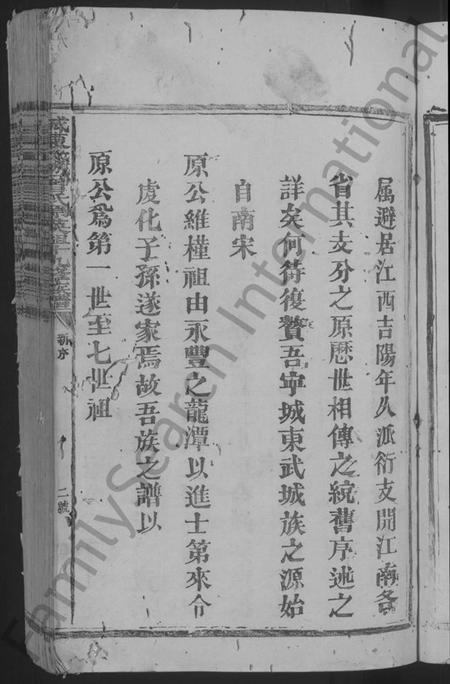 属避居江西吉陽年久派衍支開江南各
省其支分之原歷世相傳之統舊序述之
詳矣何待復贅吾寧城東武城族之源始
自南宋
原公維權祖由永豐之龍潭以進士第來令
虔化子孫遂家焉故吾族之譜以
原公為第一世至七世祖
新序
二號
FamilySearch International